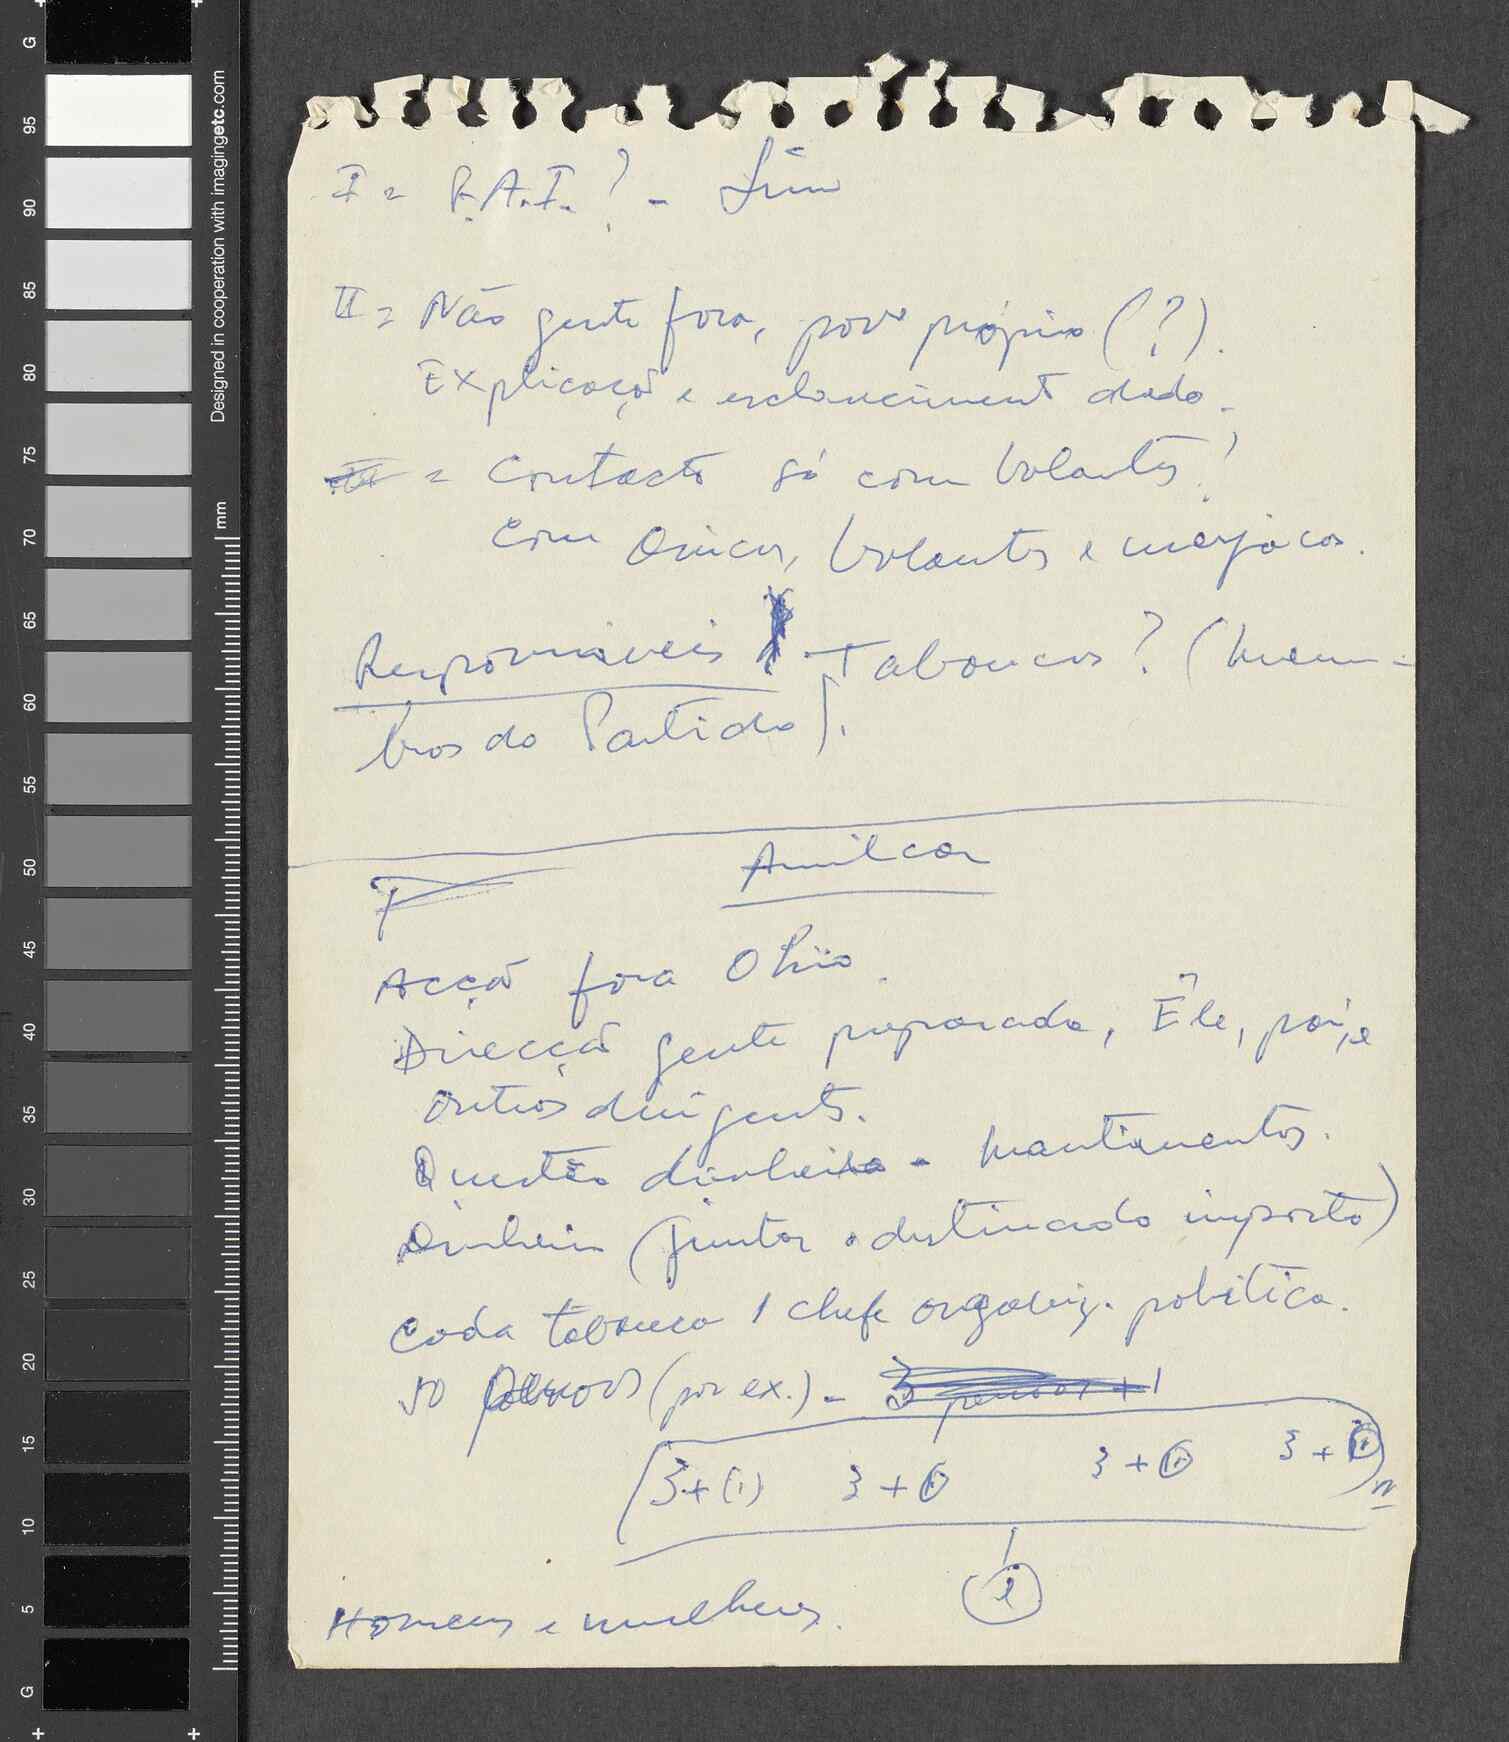 I = P.A.I.? - Sim
II = Não gente fora, povo próprio (?).
Explicação e esclarecimento dado.
III = Contacto só com Volantes?
Com Oincas, Volantes e manjacos.
Responsáveis Taboncas? (Mem-
bros do Partido).
Amilcar
Acção fora
Direcção gente preparada, Êle, pai, e
outros dirigentes.
Questão dinheiro - Mantimentos.
Dinheiro (juntar o destinado imposto)
Cada tabonca 1 chefe organiz. política.
50 pessoas (por ex.) - 3 pessoas + 1
3+(1) 3+(1) 3+(1) 3+(1)
n
1
Homens e mulheres.
G
95
90
85
80
75
70
65
60
55
50
45
40
35
30
25
20
15
10
5
G
mm
Designed in cooperation with imagingetc.com